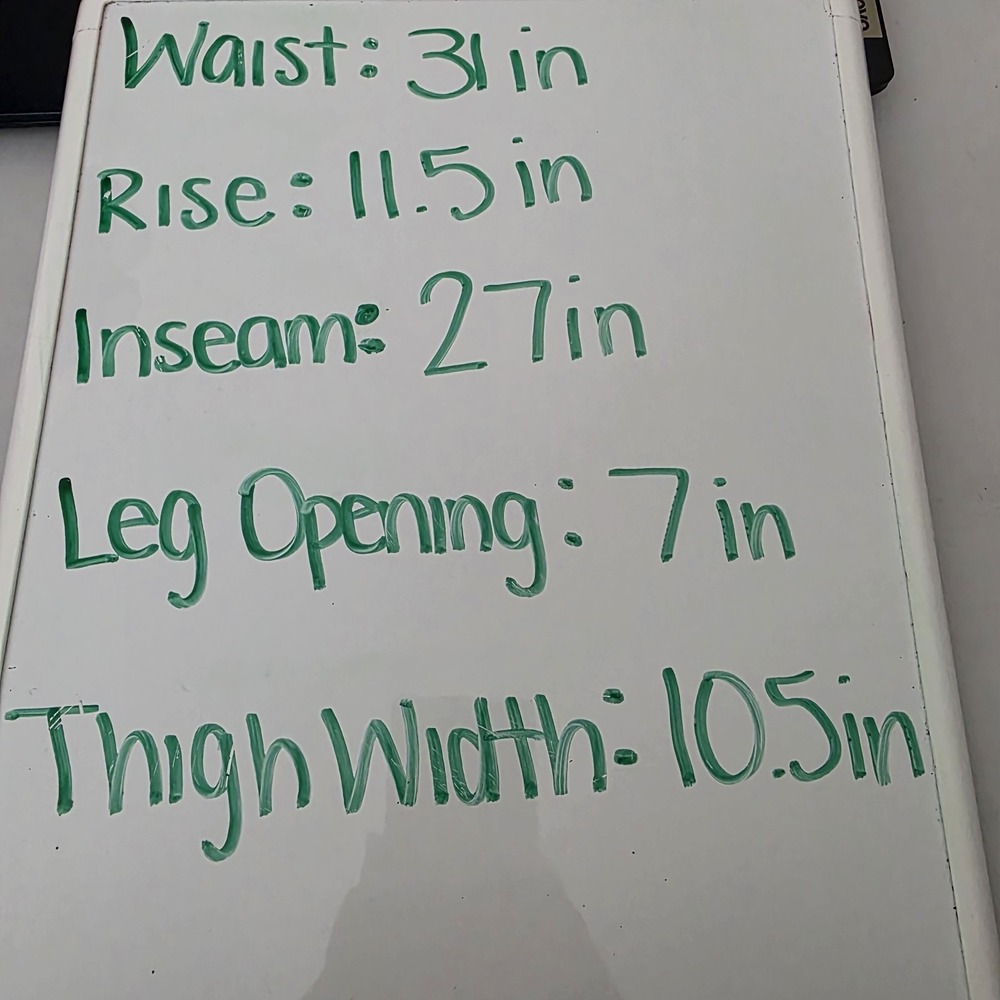 Waist: 31in
Rise: 11.5in
Inseam: 27in
Leg Opening: 7in
Thigh Width: 10.5in